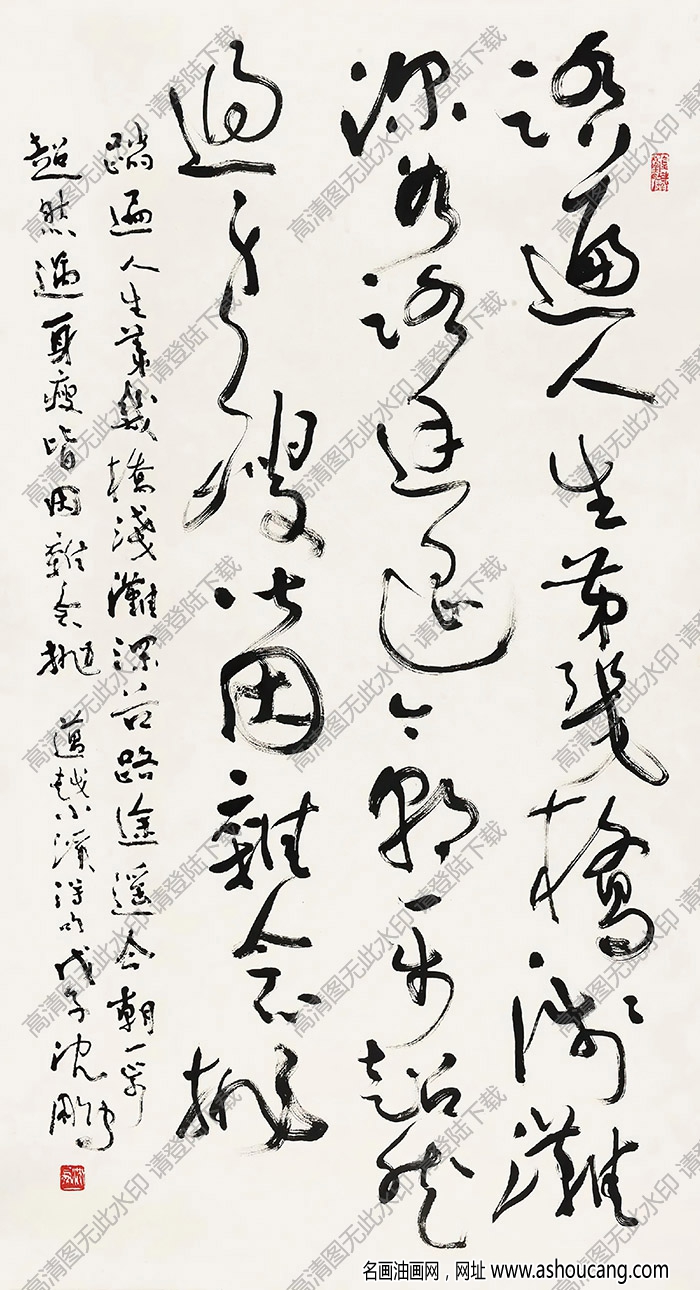 踏遍人生第幾橋淺灘
深谷路途遥今朝一步超然
過身瘦皆因雜念抛
踏遍人生第幾橋淺灘深谷路途遥今朝一步
超然過身瘦皆因雜念抛 邁越小 戊子沈鹏
高清图无此水印 请登陆下载
名画油画网，网址 www.ashoucang.com